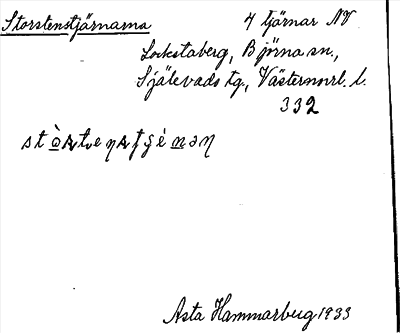 Storstenstjärnarna 4 tjärnar NV
Lockstaberg, Björna sn.,
Själevads tg., Västernorrl. l.
332
Asta Hammarberg 1933